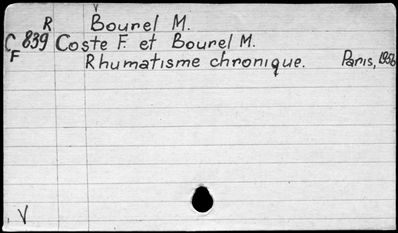 R Bourel M.
C 839 Coste F. et Bourel M.
F Rhumatisme chronique. Paris,
V